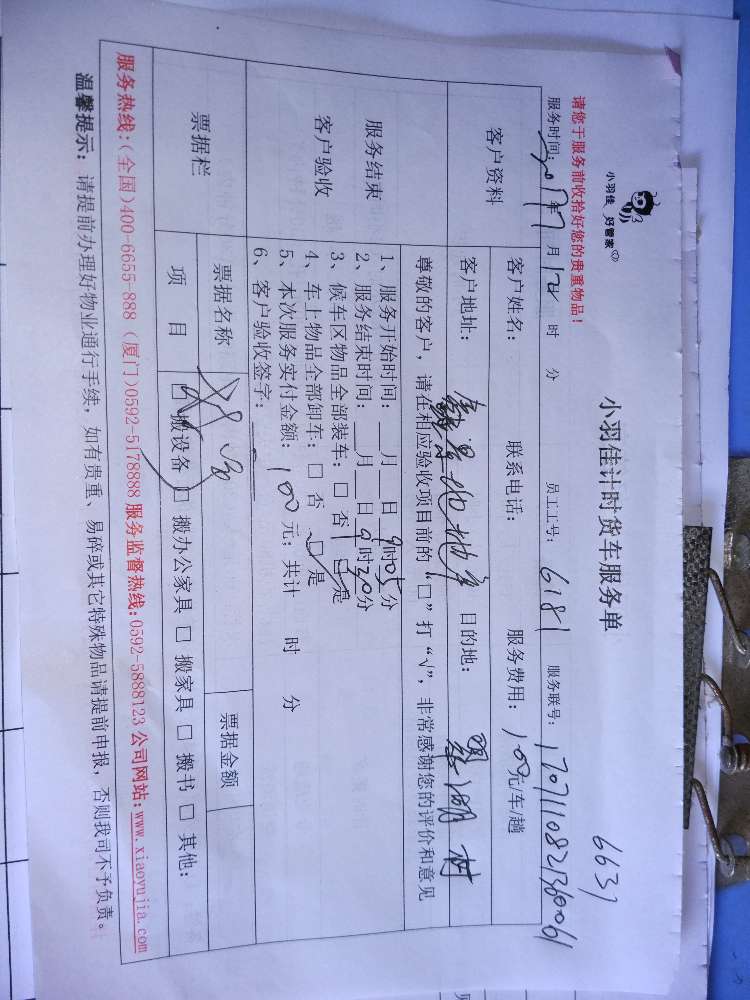 小羽佳 好管家
6637
小羽佳计时货车服务单
请您于服务前收拾好您的贵重物品！
服务时间：2017年7月12 时 分 员工工号：6181 服务联号：1707110821360061
客户资料
客户姓名： 联系电话： 服务费用：100元/车/趟
客户地址： 目的地：
服务结束
客户验收
尊敬的客户，请在相应验收项目前的“□”打“√”，非常感谢您的评价和意见
1、服务开始时间：__月__日9时05分
2、服务结束时间：__月__日9时20分
3、候车区物品全部装车：□ 否 □ 是
4、车上物品全部卸车：□ 否 □ 是
5、本次服务实付金额：100元；共计 时 分
6、客户验收签字：
票据栏
票据名称 票据金额
项 目 □ 搬设备 □ 搬办公家具 □ 搬家具 □ 搬书 □ 其他：
服务热线：(全国)400-6655-888 (厦门)0592-5178888 服务监督热线：0592-5888123 公司网站：www.xiaoyujia.com
温馨提示：请提前办理好物业通行手续，如有贵重、易碎或其它特殊物品请提前申报，否则我司不予负责。